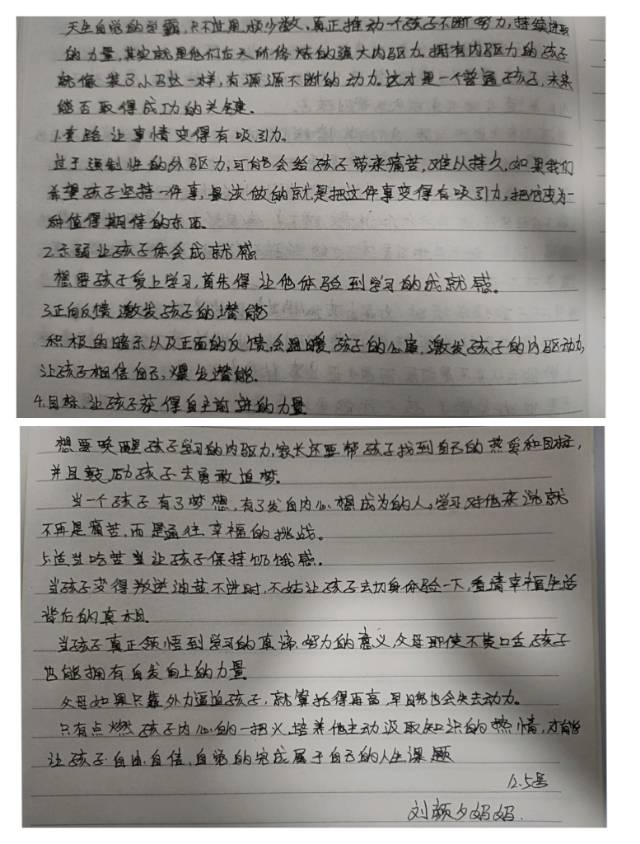 天生自觉的学霸,只不过是极少数,真正推动一个孩子不断努力,持续进取
的力量,其实就是他们后天所修炼的强大内驱力。拥有内驱力的孩子
就像装了小马达一样,有源源不断的动力。这才是一个普通孩子,未来
能否取得成功的关键。
1.体验让事情变得有吸引力。
过于强制性的外驱力,可能会给孩子带来痛苦,难以持久,如果我们
希望孩子坚持一件事,最该做的就是把这件事变得有吸引力,把它变为一
种值得期待的东西。
2.示弱让孩子体会成就感
想要孩子爱上学习,首先得让他体验到学习的成就感。
3.正向反馈激发孩子的潜能
积极的暗示以及正面的反馈,会温暖孩子的心扉,激发孩子的内驱动力,
让孩子相信自己,爆发潜能。
4.目标,让孩子获得自主前进的力量
想要唤醒孩子学习的内驱力,家长还要帮孩子找到自己的热爱和目标,
并且鼓励孩子去勇敢追梦。
当一个孩子有了梦想,有了发自内心想成为的人,学习对他来说就
不再是痛苦,而是通往幸福的挑战。
5.适当吃苦当让孩子保持饥饿感。
当孩子变得叛逆油盐不进时,不妨让孩子去切身体验一下,看清幸福生活
背后的真相。
当孩子真正领悟到学习的真谛,努力的意义,父母即使不费口舌,孩子
也能拥有自发向上的力量
父母如果只靠外力逼迫孩子,就算托得再高,早晚也会失去动力。
只有点燃孩子内心的一把火,培养他主动汲取知识的热情,才能
让孩子自由,自信,自觉的完成属于自己的人生课题
12.5号
刘颜夕妈妈.